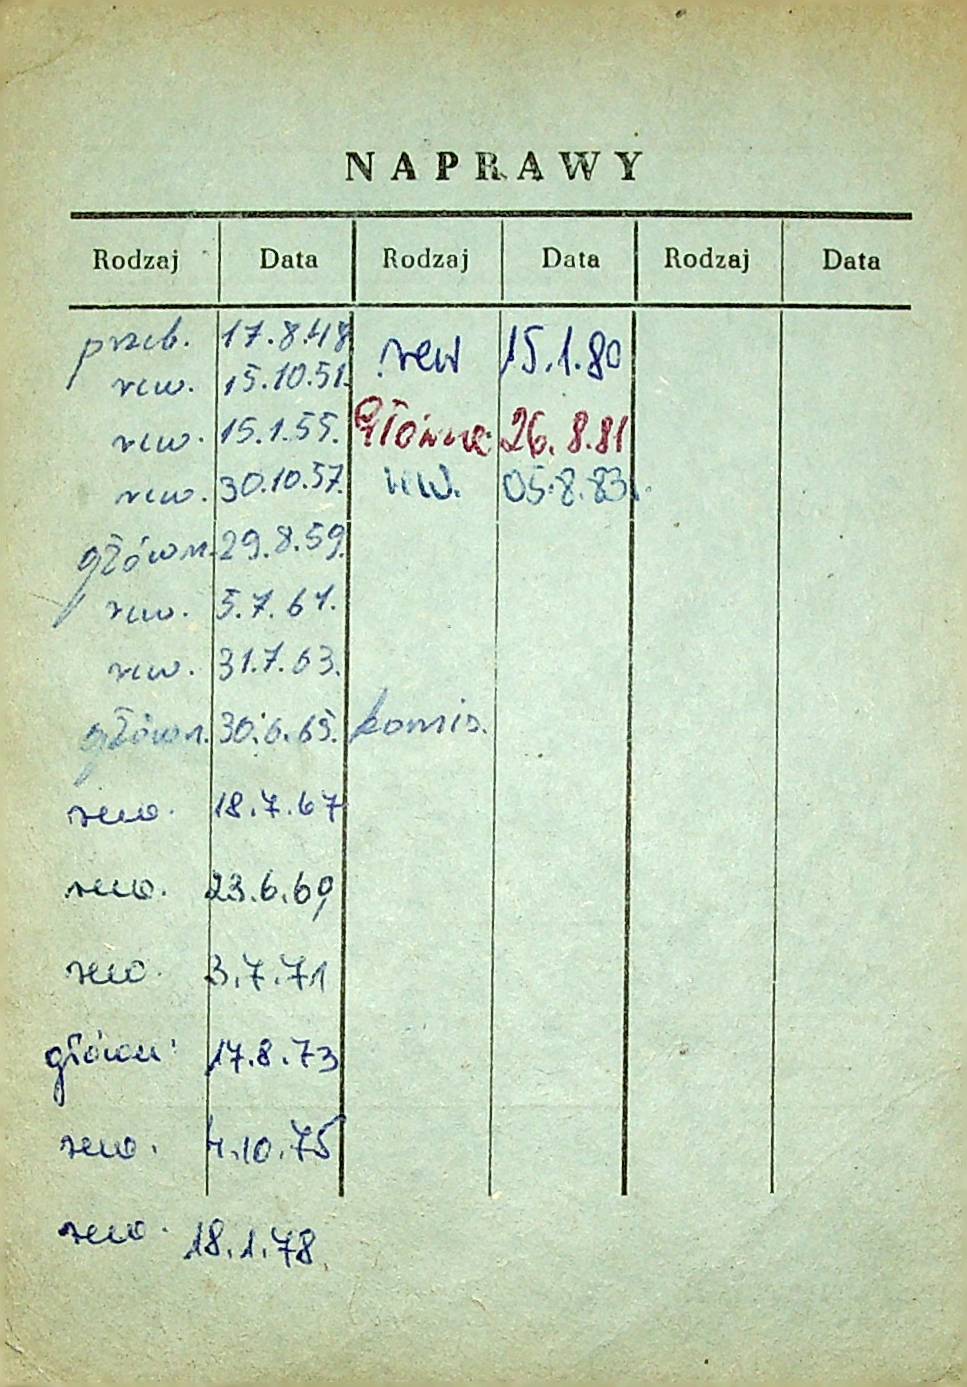 NAPRAWY
Rodzaj Data Rodzaj Data Rodzaj Data
przeb. 17.8.48 rew 15.1.80
rew. 15.10.51.
rew. 15.1.55. Główna 26.8.81
rew. 30.10.57. rew. 05.8.83r.
główn. 29.8.59.
rew. 5.7.61.
rew. 31.7.63.
główn. 30.6.65. komis.
rew. 18.7.67
rew. 23.6.69
rew. 3.7.71
główn. 17.8.73
rew. 4.10.75
rew. 18.1.78.